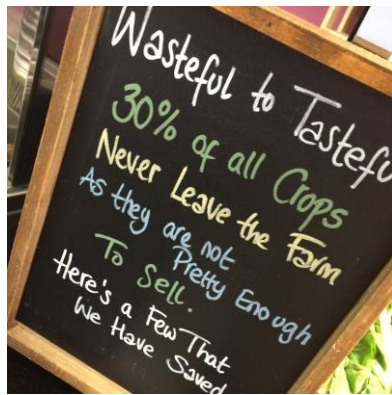 Wasteful to Tasteful
30% of all Crops
Never Leave the Farm
As they are not
Pretty Enough
To Sell.
Here's a Few That
We Have Saved